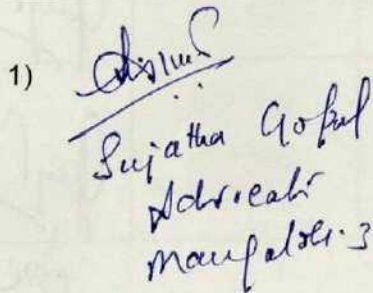 1)
Sujatha Gopal
Advocate
Mangalore-3